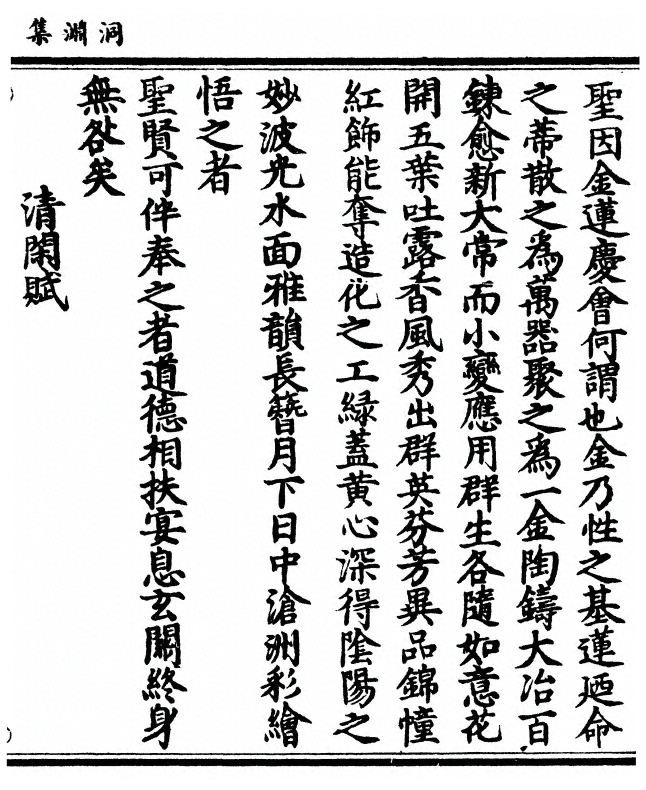 洞淵集
聖因金蓮慶會何謂也金乃性之基蓮廼命
之蒂散之為萬器聚之為一金陶鑄大冶百
鍊愈新大常而小變應用群生各隨如意花
開五葉吐露香風秀出群英芬芳異品錦幢
紅飾能奪造化之工綠蓋黃心深得陰陽之
妙波光水面雅韻長簪月下日中滄洲彩繪
悟之者
聖賢可伴奉之者道德相扶宴息玄關終身
無咎矣
清閑賦